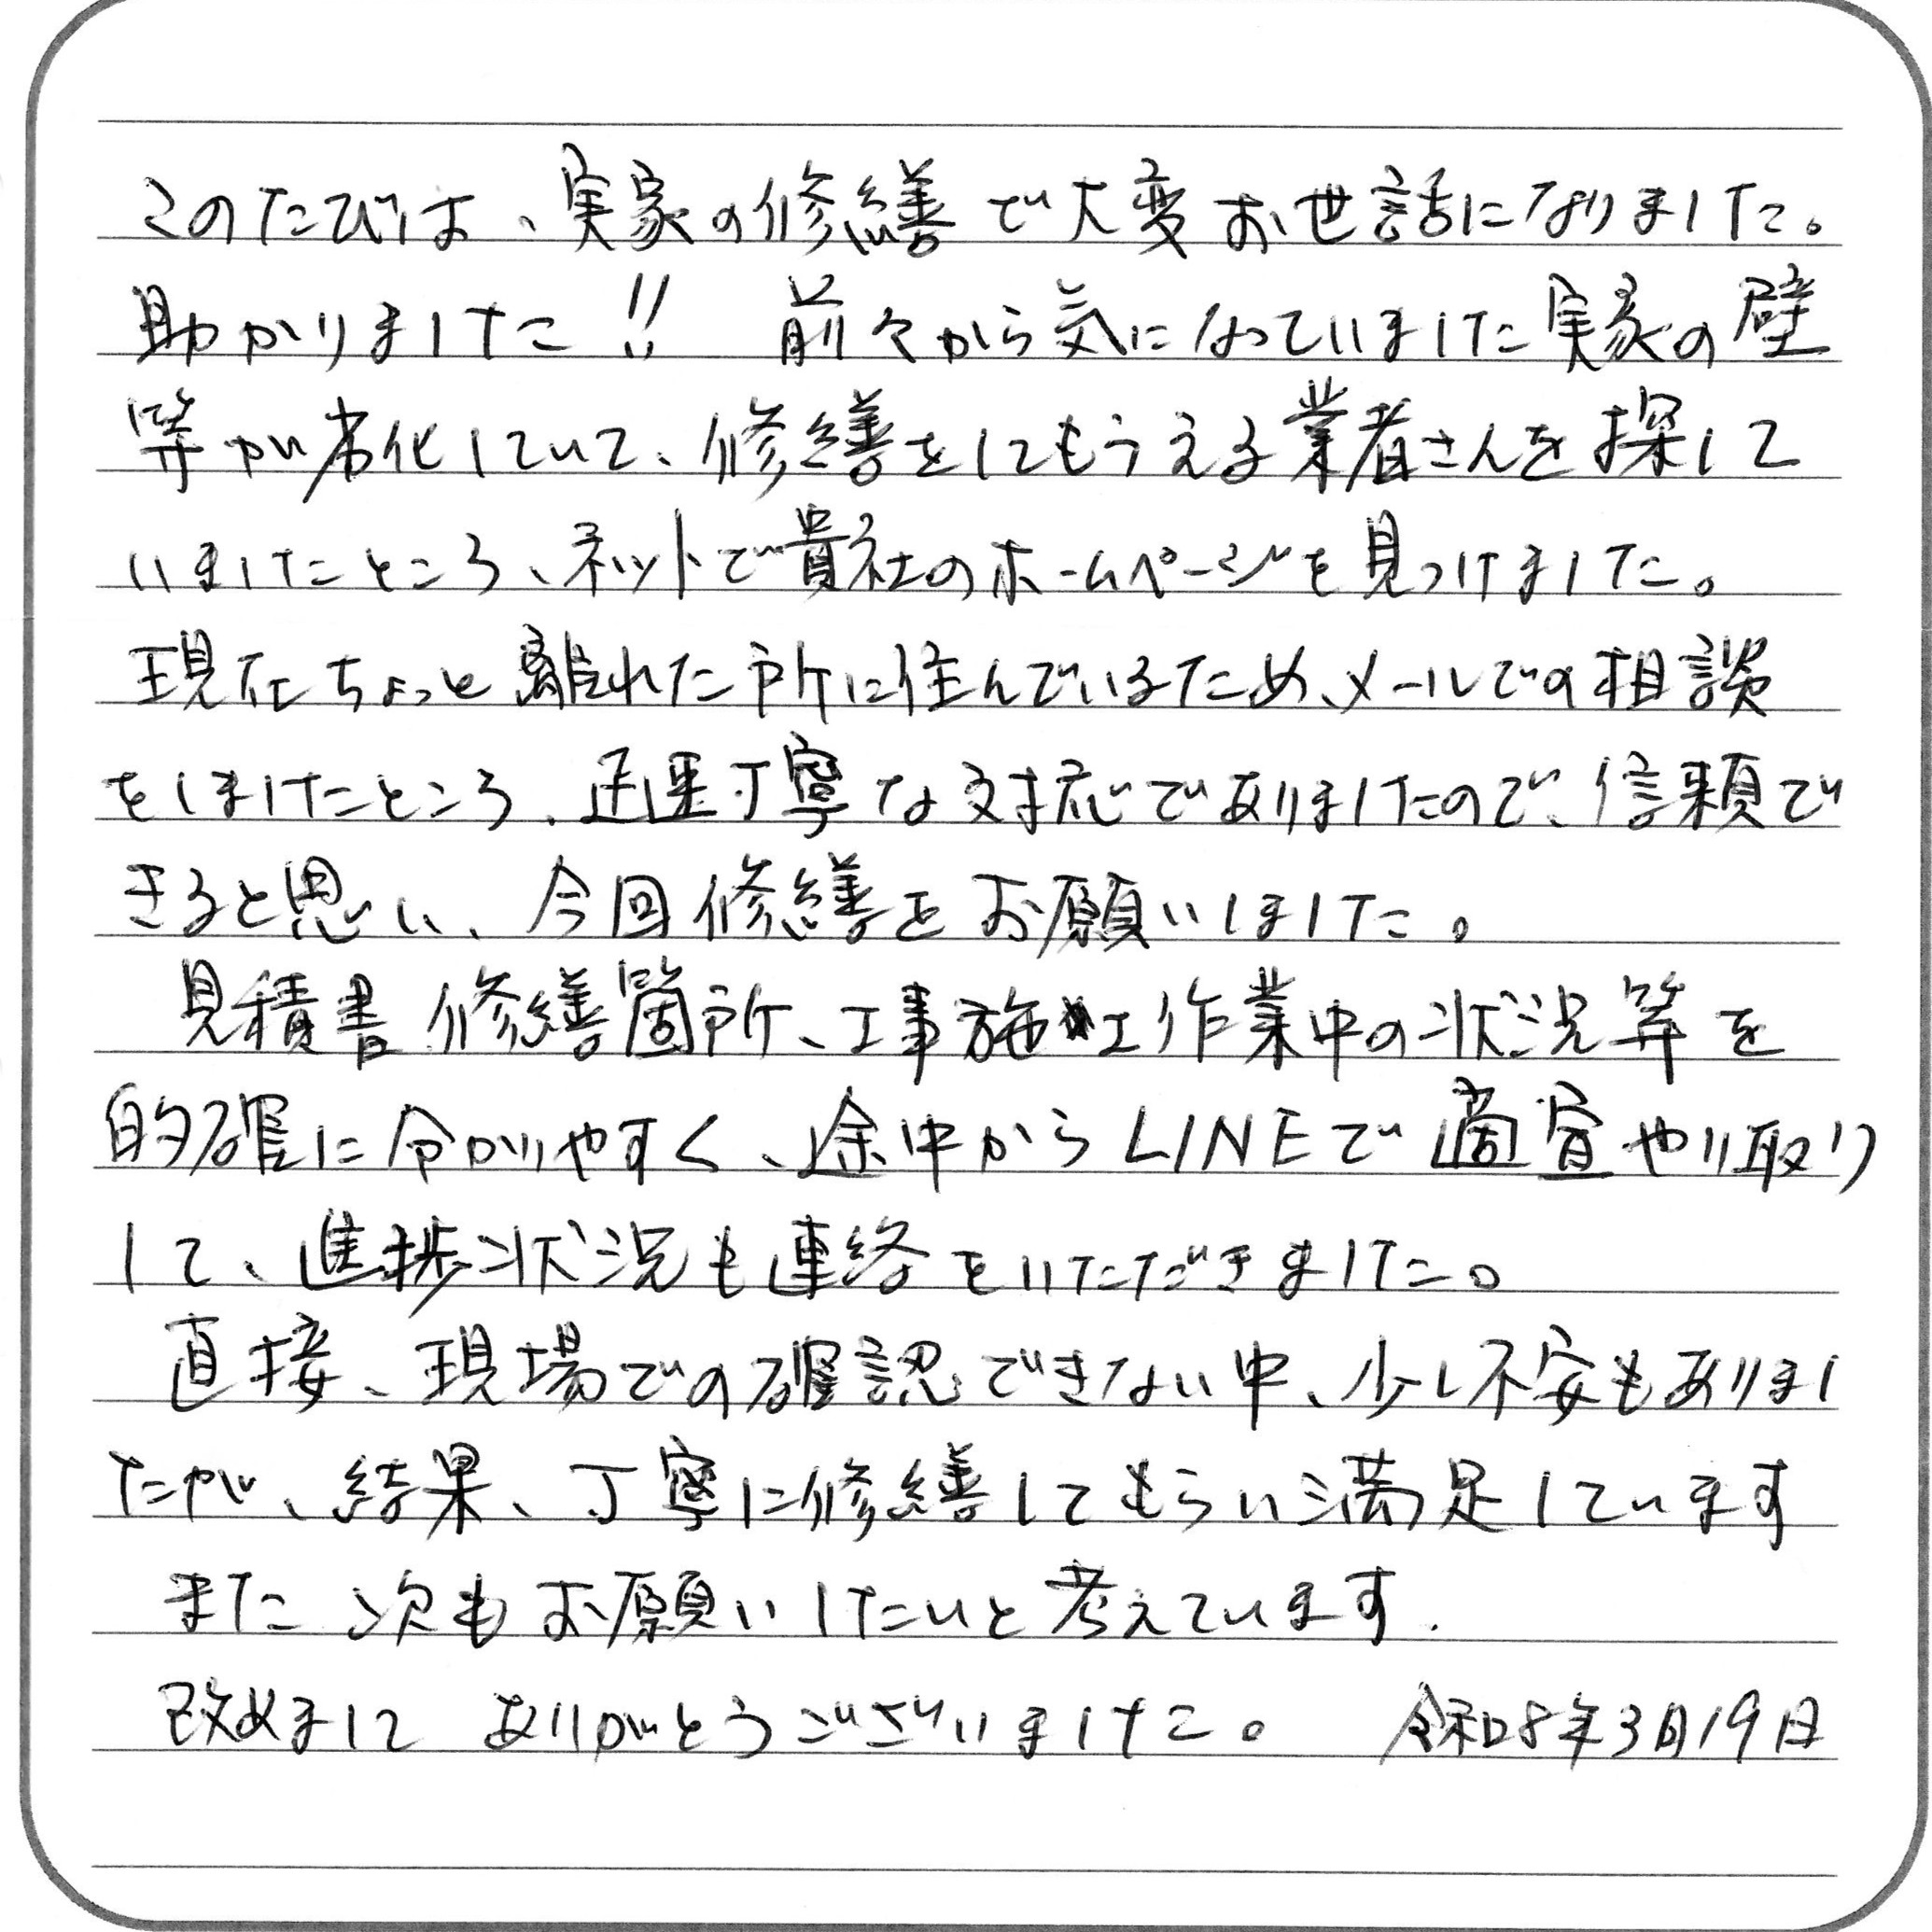 このたびは、実家の修繕で大変お世話になりました。
助かりました!! 前々から気になっていました実家の壁
等が劣化していて、修繕をしてもらえる業者さんを探して
いましたところ、ネットで貴社のホームページを見つけました。
現在ちょっと離れた所に住んでいるため、メールでの相談
をしましたところ、迅速丁寧な対応でありましたので、信頼で
きると思い、今回修繕をお願いしました。
見積書、修繕箇所、工事施工作業中の状況等を
的確に分かりやすく、途中からLINEで適宜やり取り
して、進捗状況も連絡をいただきました。
直接、現場での確認できない中、少し不安もありまし
たが、結果、丁寧に修繕してもらい満足しています
また次もお願いしたいと考えています.
改めまして ありがとうございました。 令和8年3月19日